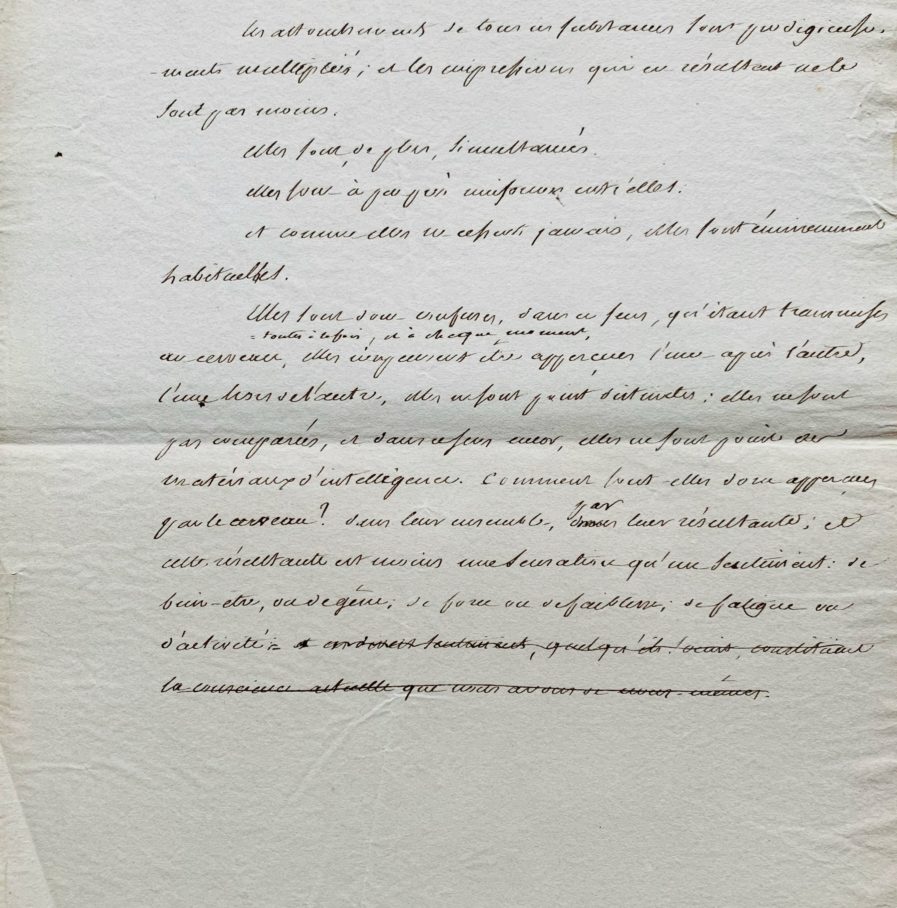 Les attouchements de tous ces substances sont prodigieuse-
-ments multipliés; et les impressions qui en résultent ne le
sont pas moins.
elles sont, de plus, simultanées.
elles sont à peu près uniformes entr'elles.
et comme elles ne cessent jamais, elles sont éminemment
habituelles.
Elles sont donc confuses, dans ce sens, qu'étant transmises
toutes à la fois, et à chaque moment,
au cerveau, elles ne peuvent être apperçues l'une après l'autre,
l'une hors de l'autre, elles ne sont point distinctes; elles ne sont
pas comparées, et dans ce sens encor, elles ne sont point des
matériaux d'intelligence. Comment sont-elles donc apperçues
par le cerveau? dans leur ensemble, par leur résultante; et
cette résultante est moins une sensation qu'un sentiment: de
bien-etre, ou de gêne; de force ou de faiblesse; de fatigue ou
d'activité: sentiments, quelqu'ils soient, constituent
la conscience actuelle que nous avons de nous-mêmes.